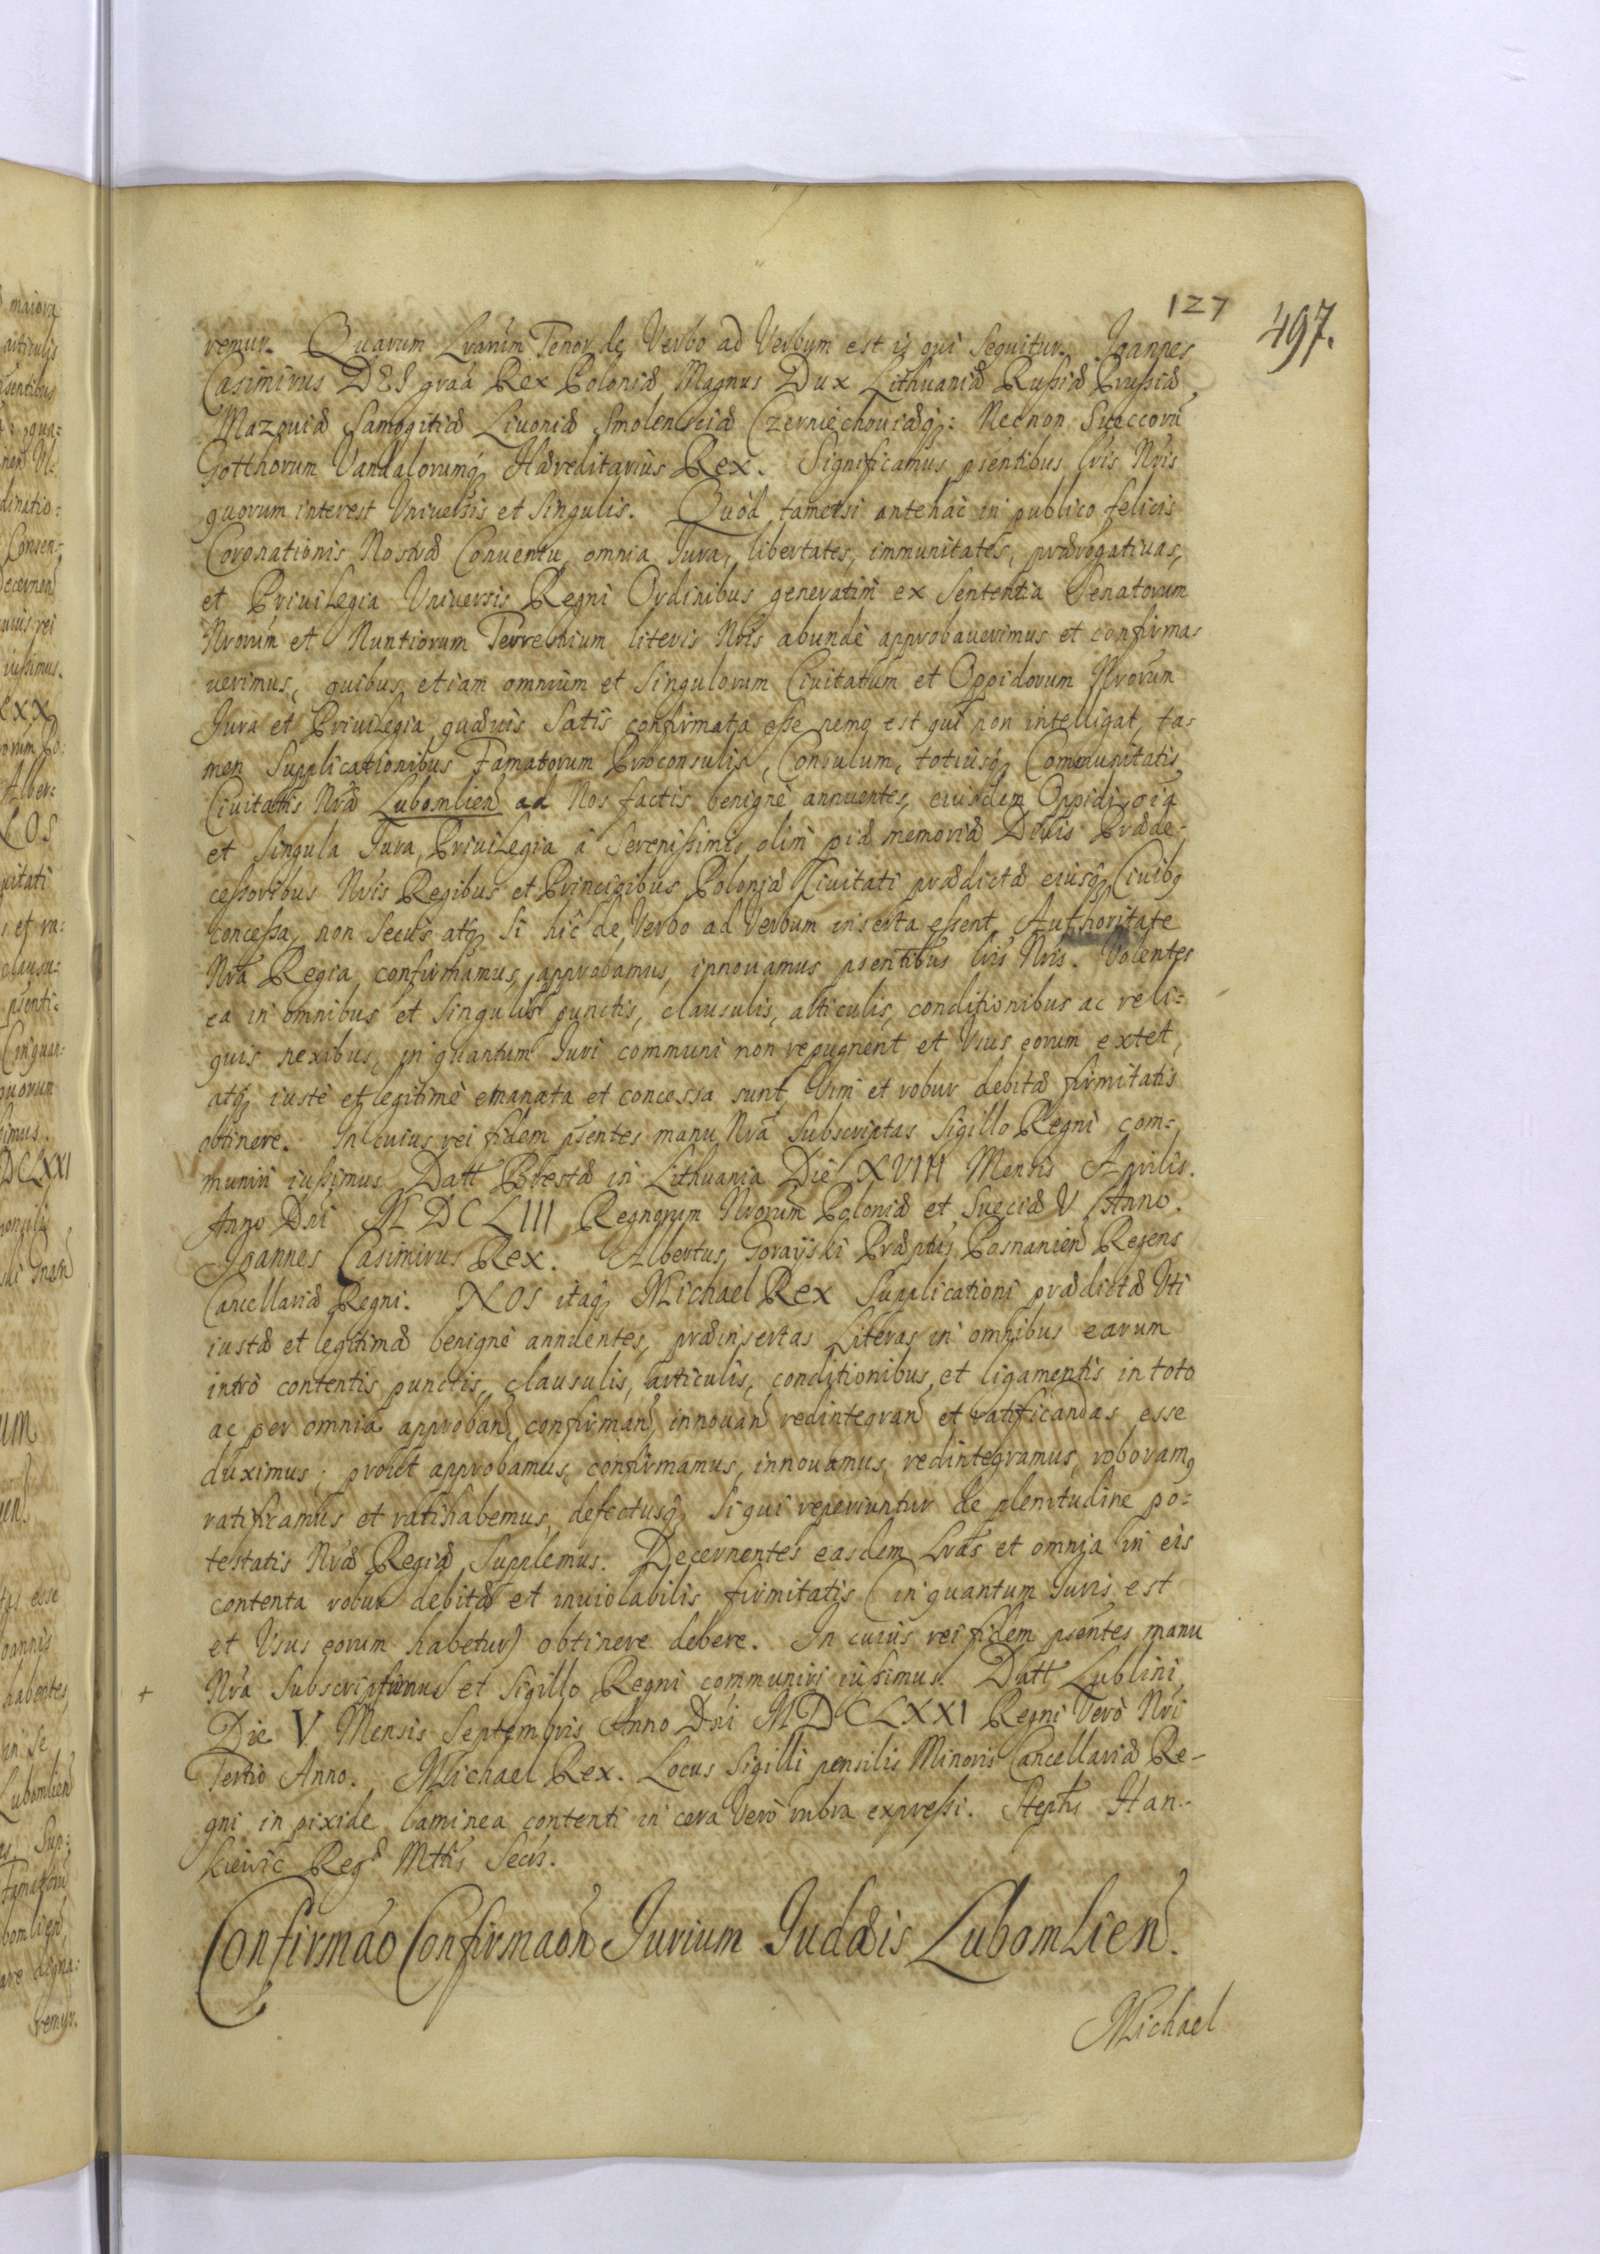 127
497.
remur. Quarum Lrarum Tenor de Verbo ad Verbum est is qui sequitur. Joannes
Casimirus DEI gra̅a Rex Poloniæ, Magnus Dux Lithuaniæ Rußiæ Prußiæ
Mazouiæ Samogitiæ Liuoniæ Smolensciæ Czerniechouiæq̢: Necnon Sueccoru̅
Gotthorum Vandalorumq̢ Hæreditarius Rex. Significamus pṡentibus lris Nris
quorum interest Vniuersis et singulis. Quòd tametsi antehàc in publico felicis
Coronationis Nostræ Conuentu, omnia Iura, libertates, immunitates, prærogatiuas,
et Priuilegia Vniuersis Regni Ordinibus generatim ex sententia Senatorum
Nrorum et Nuntiorum Terrestrium literis Nris abundè approbauerimus et confirma-
uerimus, quibus etiam omnium et singulorum Ciuitatum et Oppidorum Nrorum
Iura et Priuilegia quæuis satis confirmata eße nemo est qui non intelligat, ta-
men Supplicationibus Famatorum Proconsulis, Consulum, totiusq̢ Communitatis
Ciuitatis Nræ Lubomlien̄ ad Nos factis benignè annuentes, eiusdem Oppidi o̅ia
et singula Iura, Priuilegia à Serenißimis olim piæ memoriæ Diuis Præde-
ceßoribus Nris Regibus et Principibus Poloniæ Ciuitati prædictæ eiusq̢ Ciuibꝰ
conceßa, non secùs atq̢ si hìc de Verbo ad Verbum inserta eßent, Authoritate
Nra Regia confirmamus, approbamus, innouamus pṡentibus lris Nris. Volentes
ea in omnibus et singulis punctis, clausulis, articulis, conditionibus ac reli-
quis nexibus, in quantum Iuri communi non repugnent et Vsus eorum extet,
atq̢ iustè et legitimè emanata et concessa sunt, Vim et robur debitæ firmitatis
obtinere. In cuius rei fidem pṡentes manu Nra subscriptas Sigillo Regni com-
muniri iußimus. Datt Brestæ in Lithuania Die XVIII Mensis Aprilis.
Anno Dni MDCLIII Regnorum Nrorum Poloniæ et Sueciæ V Anno.
Joannes Casimirus Rex. Albertus Gorayski Præptus Posnanien̄ Regens
Cancellariæ Regni. NOS itaq̢ Michael Rex Supplicationi prædictæ Vti
iustæ et legitimæ benignè annuentes, præinsertas Literas in omnibus earum
intrò contentis punctis, clausulis, articulis, conditionibus et ligamentis in toto
ac per omnia approban̄ confirman̄ innouan̄ redintegran̄ et ratificandas esse
duximus; proùt approbamus, confirmamus, innouamus, redintegramus, roboramꝰ
ratificamus et ratihabemus, defectusq̢ si qui reperiuntur de plenitudine po-
testatis Nræ Regiæ supplemus. Decernentes easdem Lras et omnia in eis
contenta robur debitæ et inuiolabilis firmitatis (in quantum Iuris est
et Vsus eorum habetur) obtinere debere. In cuius rei fidem pṡentes manu
Nra subscripsimus et Sigillo Regni communiri iußimus. Datt Lublini,
Die V Mensis Septembris Anno Dni MDCLXXI Regni Verò Nri
Tertio Anno. Michael Rex. Locus Sigilli pensilis Minoris Cancellariæ Re-
gni in pixide laminea contenti in cera verò rubra expreßi. Stephs Han-
kiewic Regæ Mttis Secrs.
Confirmao Confirmaon̄ Jurium Judæis Lubomlien̄.
Michael